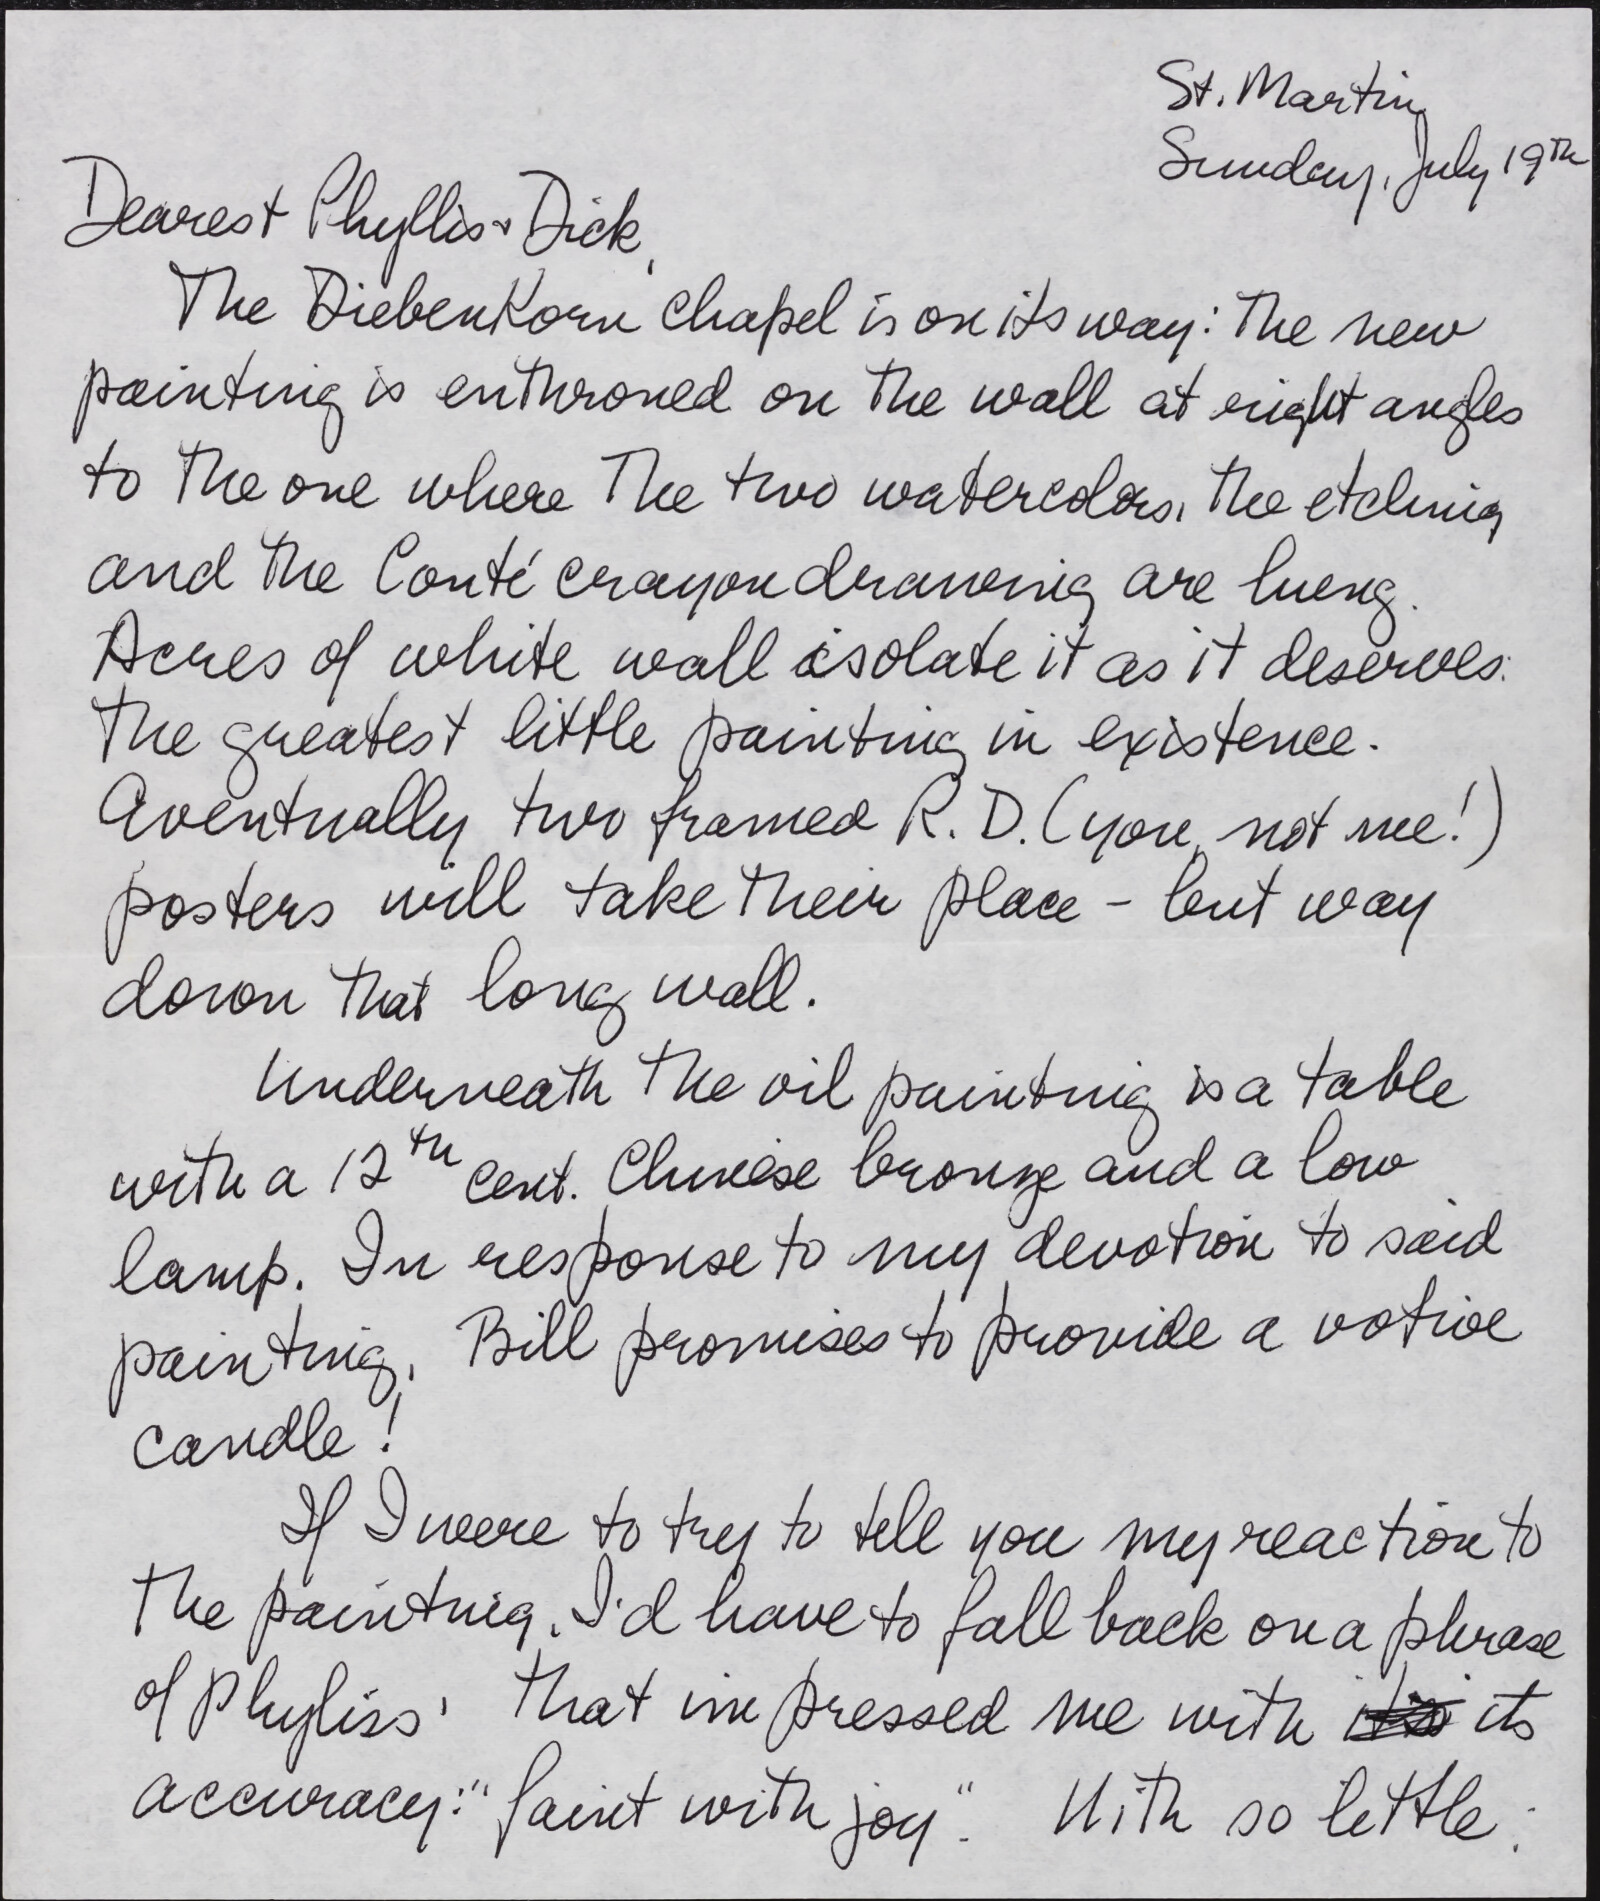 St. Martin
Sunday, July 19th
Dearest Phyllis & Dick,
The Diebenkorn chapel is on its way: The new
painting is enthroned on the wall at right angles
to the one where the two watercolors, the etching
and the Conté crayon drawing are hung.
Acres of white wall isolate it as it deserves:
the greatest little painting in existence.
Eventually two framed R. D. (you, not me!)
posters will take their place - but way
down that long wall.
Underneath the oil painting is a table
with a 12th cent. Chinese bronze and a low
lamp. In response to my devotion to said
painting, Bill promises to provide a votive
candle!
If I were to try to tell you my reaction to
the painting, I'd have to fall back on a phrase
of Phyliss' that impressed me with its its
accuracy: "faint with joy". With so little: